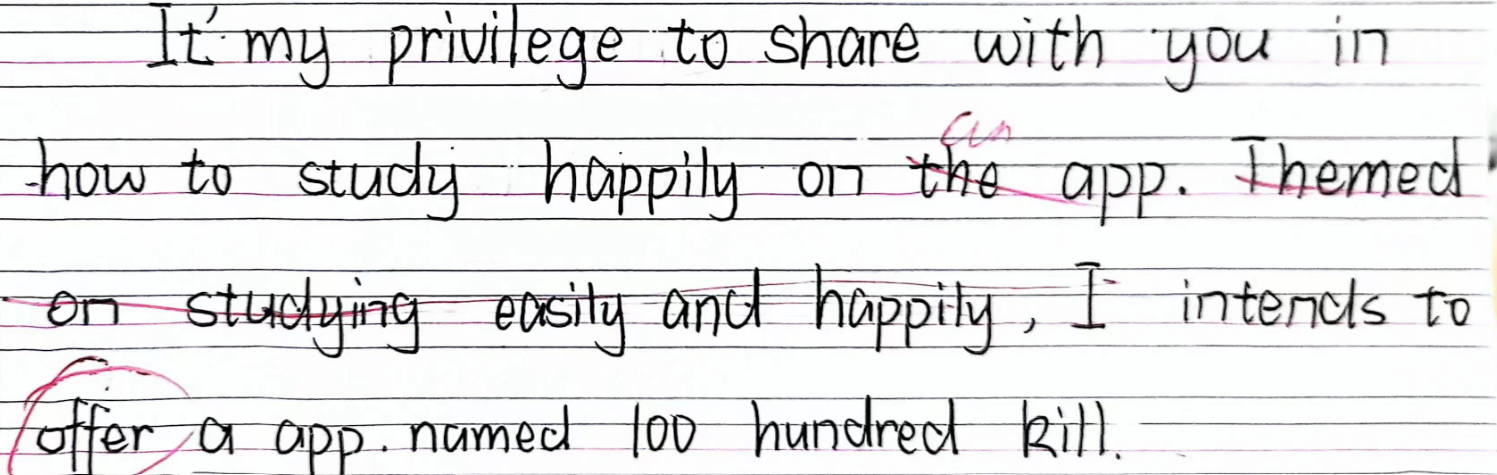 It' my privilege to share with you in
an
how to study happily on the app. Themed
on studying easily and happily, I intends to
offer a app. named 100 hundred kill.